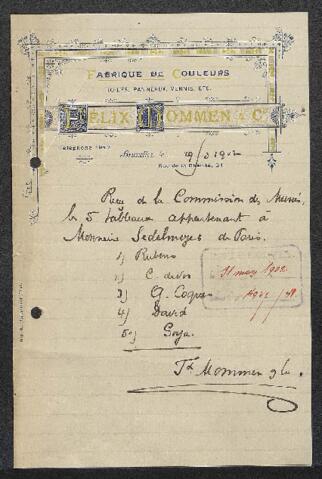 FABRIQUE DE COULEURS
TOILES, PANNEAUX, VERNIS, ETC.
FÉLIX MOMMEN & Cº
TÉLÉPHONE
Bruxelles, le 19/3 1902
Reçu de la Commission des Musées
les 5 tableaux appartenant à
Monsieur Sedelmeyer de Paris.
1) Rubens
2) C. de Vos
3) G. Coques
4) David
5) Goya
31 mars 1902
Fx Mommen & Cie.